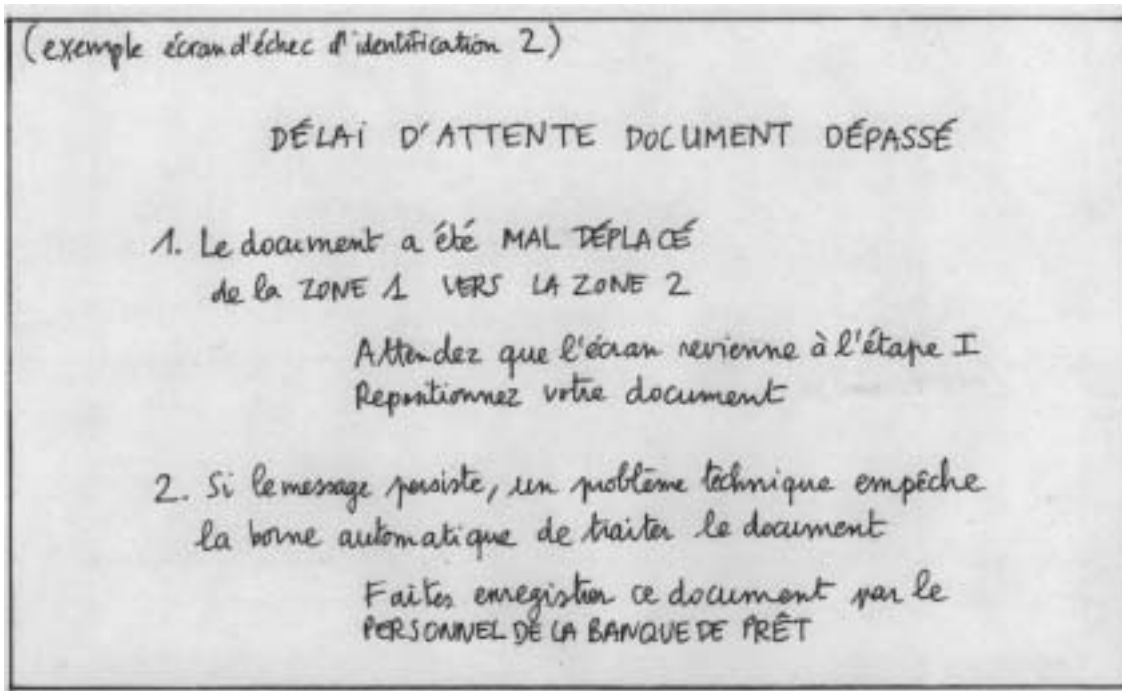 (exemple écran d'échec d'identification 2)
DÉLAI D'ATTENTE DOCUMENT DÉPASSÉ
1. Le document a été MAL DÉPLACÉ
de la ZONE 1 VERS LA ZONE 2
Attendez que l'écran revienne à l'étape I
Repositionnez votre document
2. Si le message persiste, un problème technique empêche
la borne automatique de traiter le document
Faites enregistrer ce document par le
PERSONNEL DE LA BANQUE DE PRÊT